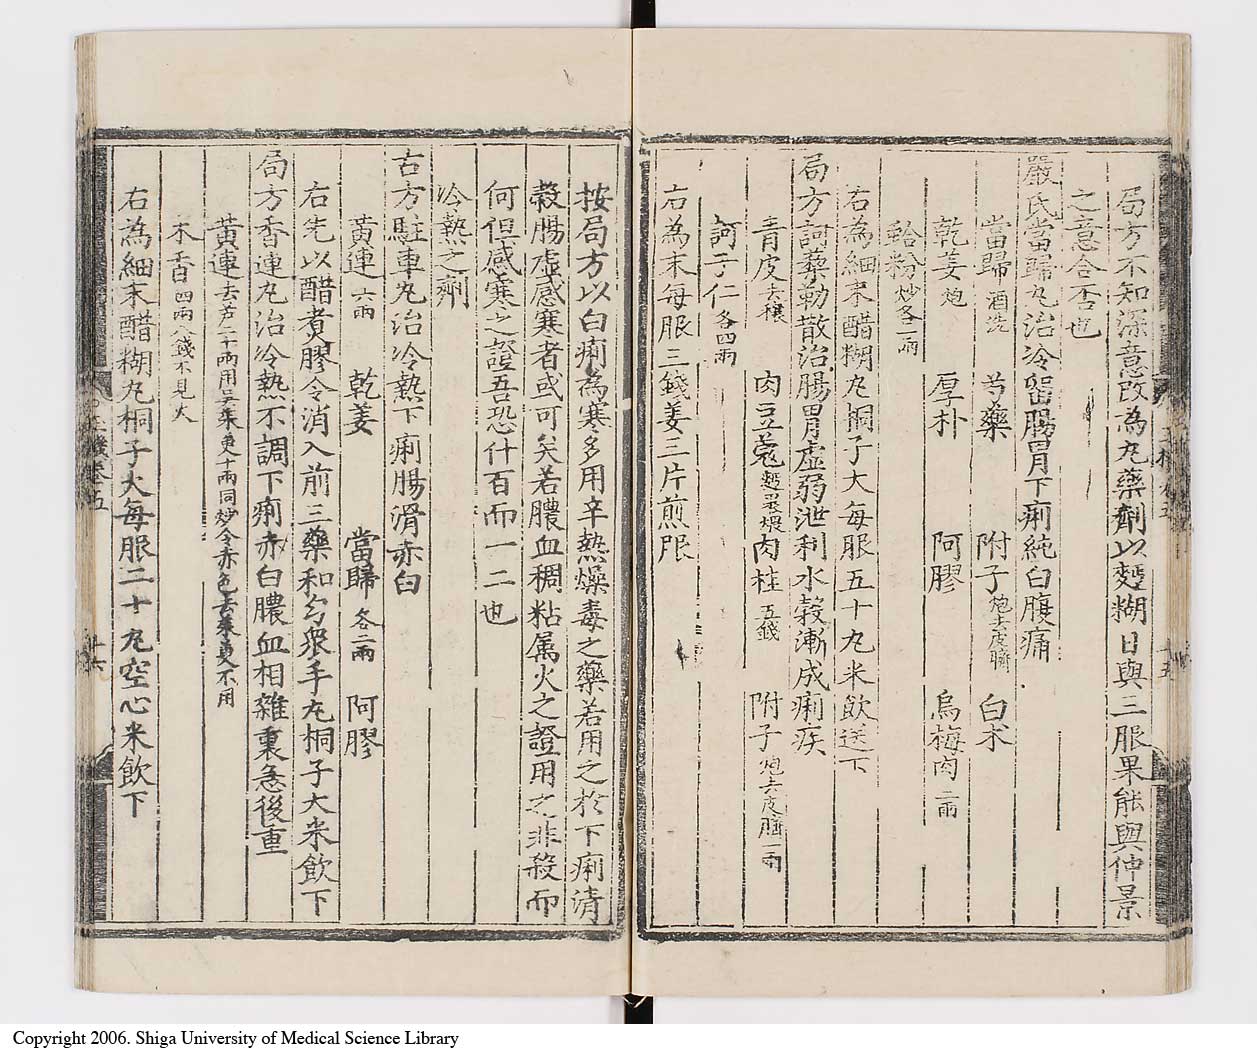 局方不知深意改為丸藥劑以麪糊日與三服果能與仲景
之意合否也
嚴氏當歸丸治冷留腸胃下痢純白腹痛
當歸酒洗 芍藥 附子炮去皮臍 白朮
乾姜炮 厚朴 阿膠 烏梅肉二兩
蛤粉炒各一兩
右為細末醋糊丸桐子大每服五十丸米飲送下
局方訶藜勒散治腸胃虛弱泄利水穀漸成痢疾
青皮去穰 肉豆蔻麪裹煨 肉桂五錢 附子炮去皮臍一兩
訶子仁各四兩
右為末每服三錢姜三片煎服
按局方以白痢為寒多用辛熱燥毒之藥若用之於下痢清
穀腸虛感寒者或可矣若膿血稠粘属火之證用之非殺而
何但感寒之證吾恐什百而一二也
冷熱之劑
古方駐車丸治冷熱下痢腸滑赤白
黃連六兩 乾姜 當歸各二兩 阿膠
右先以醋煮膠令消入前三藥和勻衆手丸桐子大米飲下
局方香連丸治冷熱不調下痢赤白膿血相雜裏急後重
黃連去芳二十兩用吴茱萸十兩同炒令赤色去茱萸不用
木香四兩八錢不見火
右為細末醋糊丸桐子大每服二十丸空心米飲下
十六
Copyright 2006. Shiga University of Medical Science Library